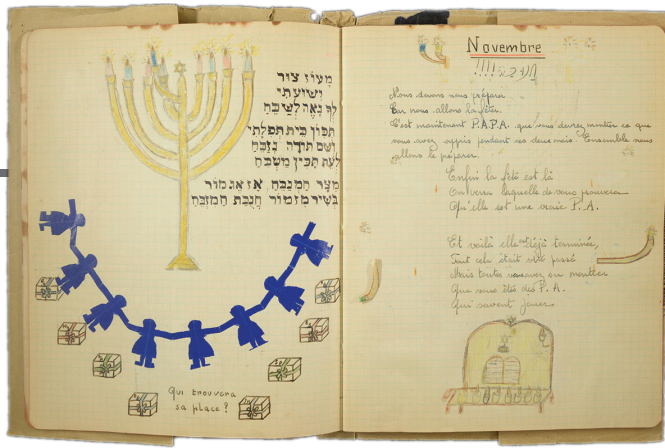 מעוז צור
ישועתי
לך נאה לשבח
תכון בית תפלתי
ושם תודה נזבח
לעת תכין מטבח
מצר המנבח אז אגמור
בשיר מזמור חנכת המזבח
Qui trouvera
sa place ?
Novembre
Nous devons nous préparer
Car nous allons la fêter.
C'est maintenant P.A.P.A. que vous devrez montrer ce que
vous avez appris pendant ces deux mois. Ensemble nous
allons le préparer.
Enfin la fête est là
On verra laquelle de vous prouvera
Qu'elle est une vraie P.A.
Et voilà elle est déjà terminée,
Tout cela était vite passé
Mais toutes vous avez su montrer
Que vous êtes des P.A.
Qui savent jouer.